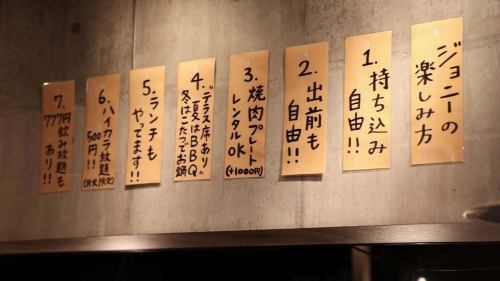 ジョニーの
楽しみ方
1. 持ち込み
自由!!
2. 出前も
自由!!
3. 焼肉プレート
レンタル
OK!
(+1000円)
4. "テラス席あり"
夏はBBQ
冬はこたつでお鍋
5. ランチも
やってます!!
6. ハイカラ放題
500円!!
(月火限定)
7. 777円飲み放題も
あり!!